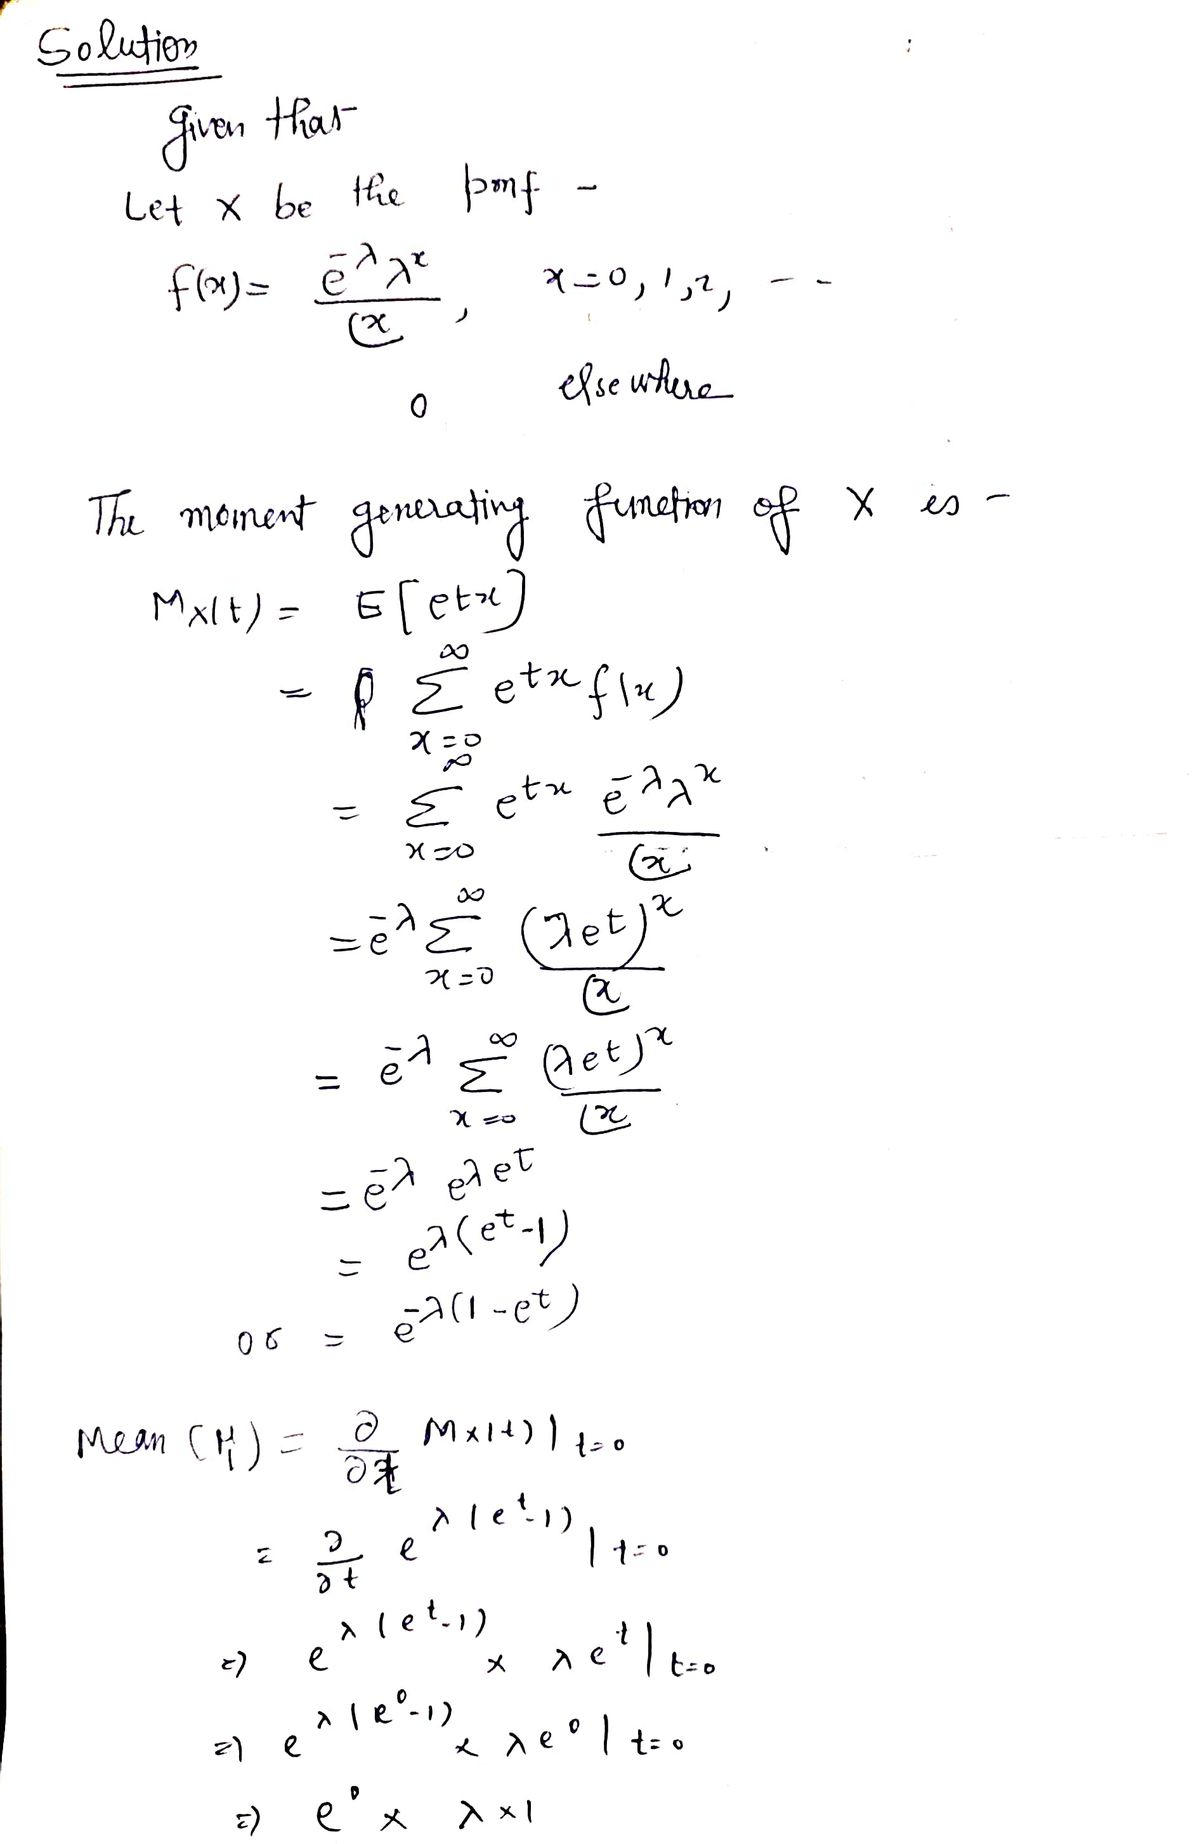 Solution
given that
Let X be the pmf -
f(x) = e^-λ λ^x / ⌊x , x=0,1,2, --
0 elsewhere
The moment generating function of X is -
Mx(t) = E[etx]
= ∞Σx=0 etx f(x)
= ∞Σx=0 etx e^-λ λ^x / ⌊x
= e^-λ ∞Σx=0 (λet)^x / ⌊x
= e^-λ ∞Σx=0 (λet)^x / ⌊x
= e^-λ eλet
= eλ(et-1)
or = e^-λ(1-et)
Mean (μ'₁) = ∂/∂t Mx(t) | t=0
= ∂/∂t e^λ(e^t-1) | t=0
=) e^λ(e^t-1) × λe^t | t=0
=) e^λ(e^0-1) × λe^0 | t=0
=) e^0 × λ×1